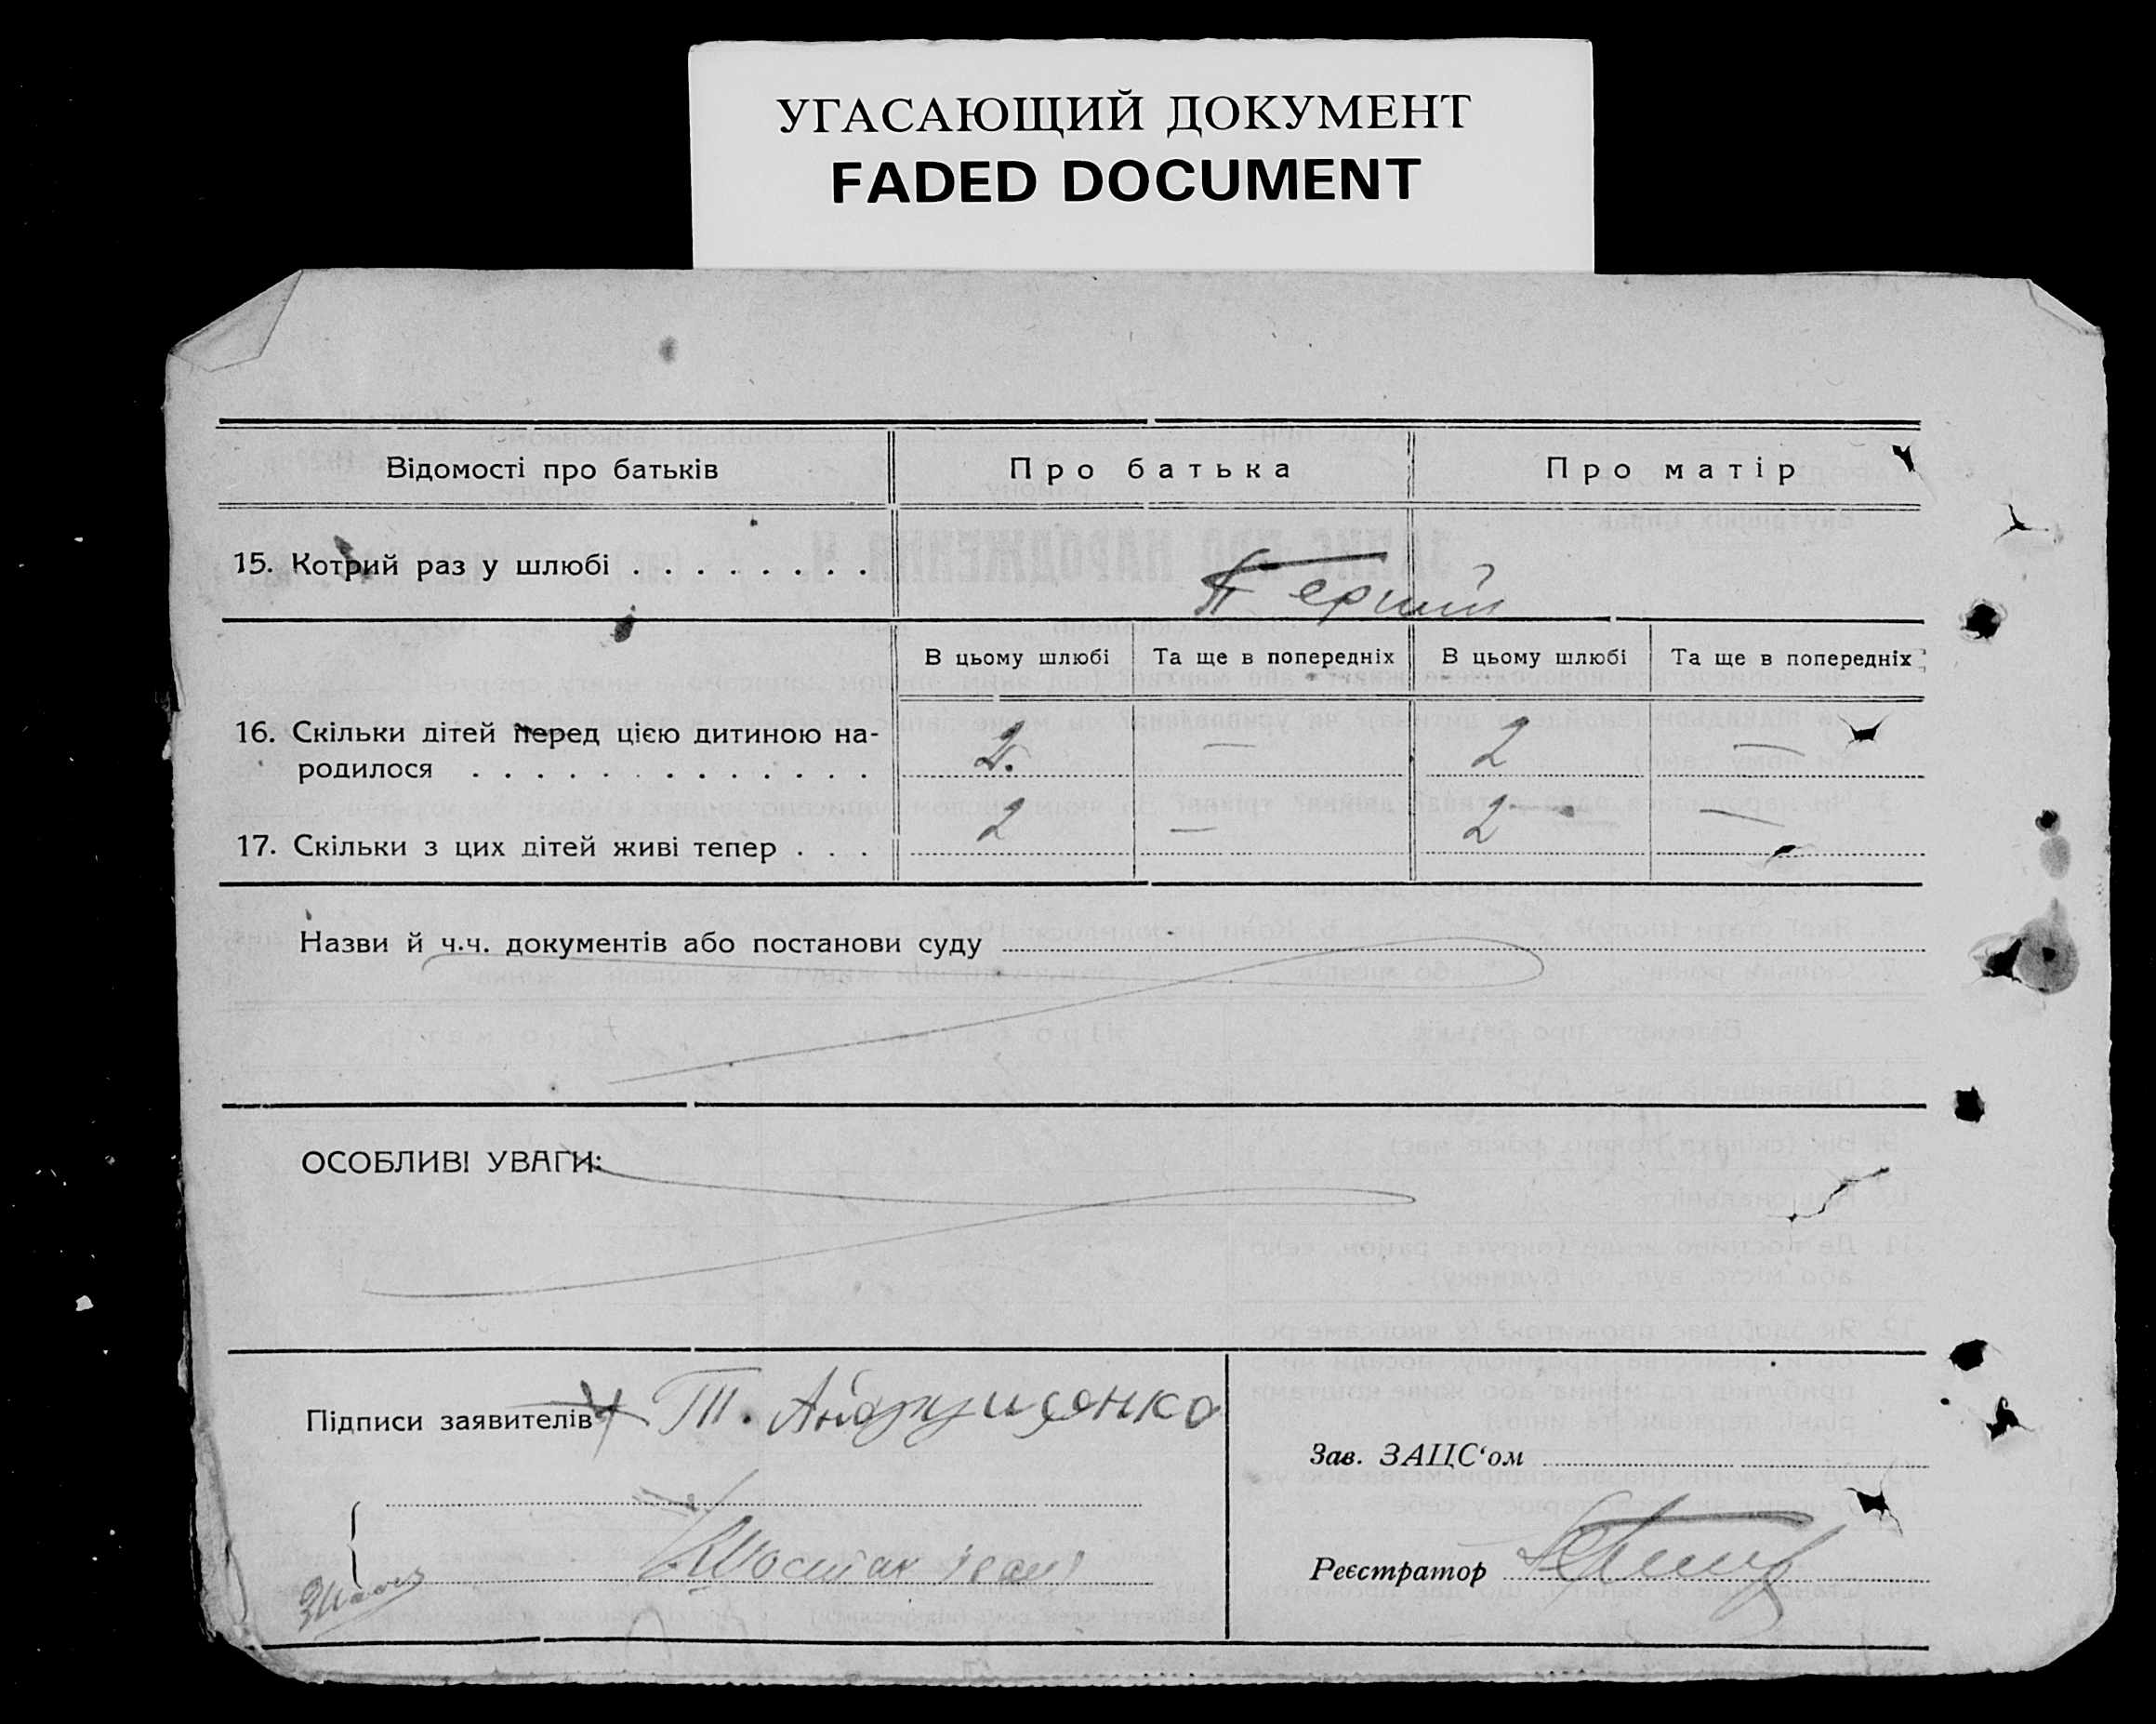 УГАСАЮЩИЙ ДОКУМЕНТ
FADED DOCUMENT
Відомості про батьків
Про батька
Про матір
15. Котрий раз у шлюбі . . . . . . . .
Перший
В цьому шлюбі
Та ще в попередніх
В цьому шлюбі
Та ще в попередніх
16. Скільки дітей перед цією дитиною на-
родилося . . . . . . . . . . . . .
2.
—
2
—
17. Скільки з цих дітей живі тепер . . .
2
—
2
—
Назви й ч.ч. документів або постанови суду
ОСОБЛИВІ УВАГИ:
Підписи заявителів
Т.
Зав. ЗАЦС‘ом
Шостак Іван
Реєстратор